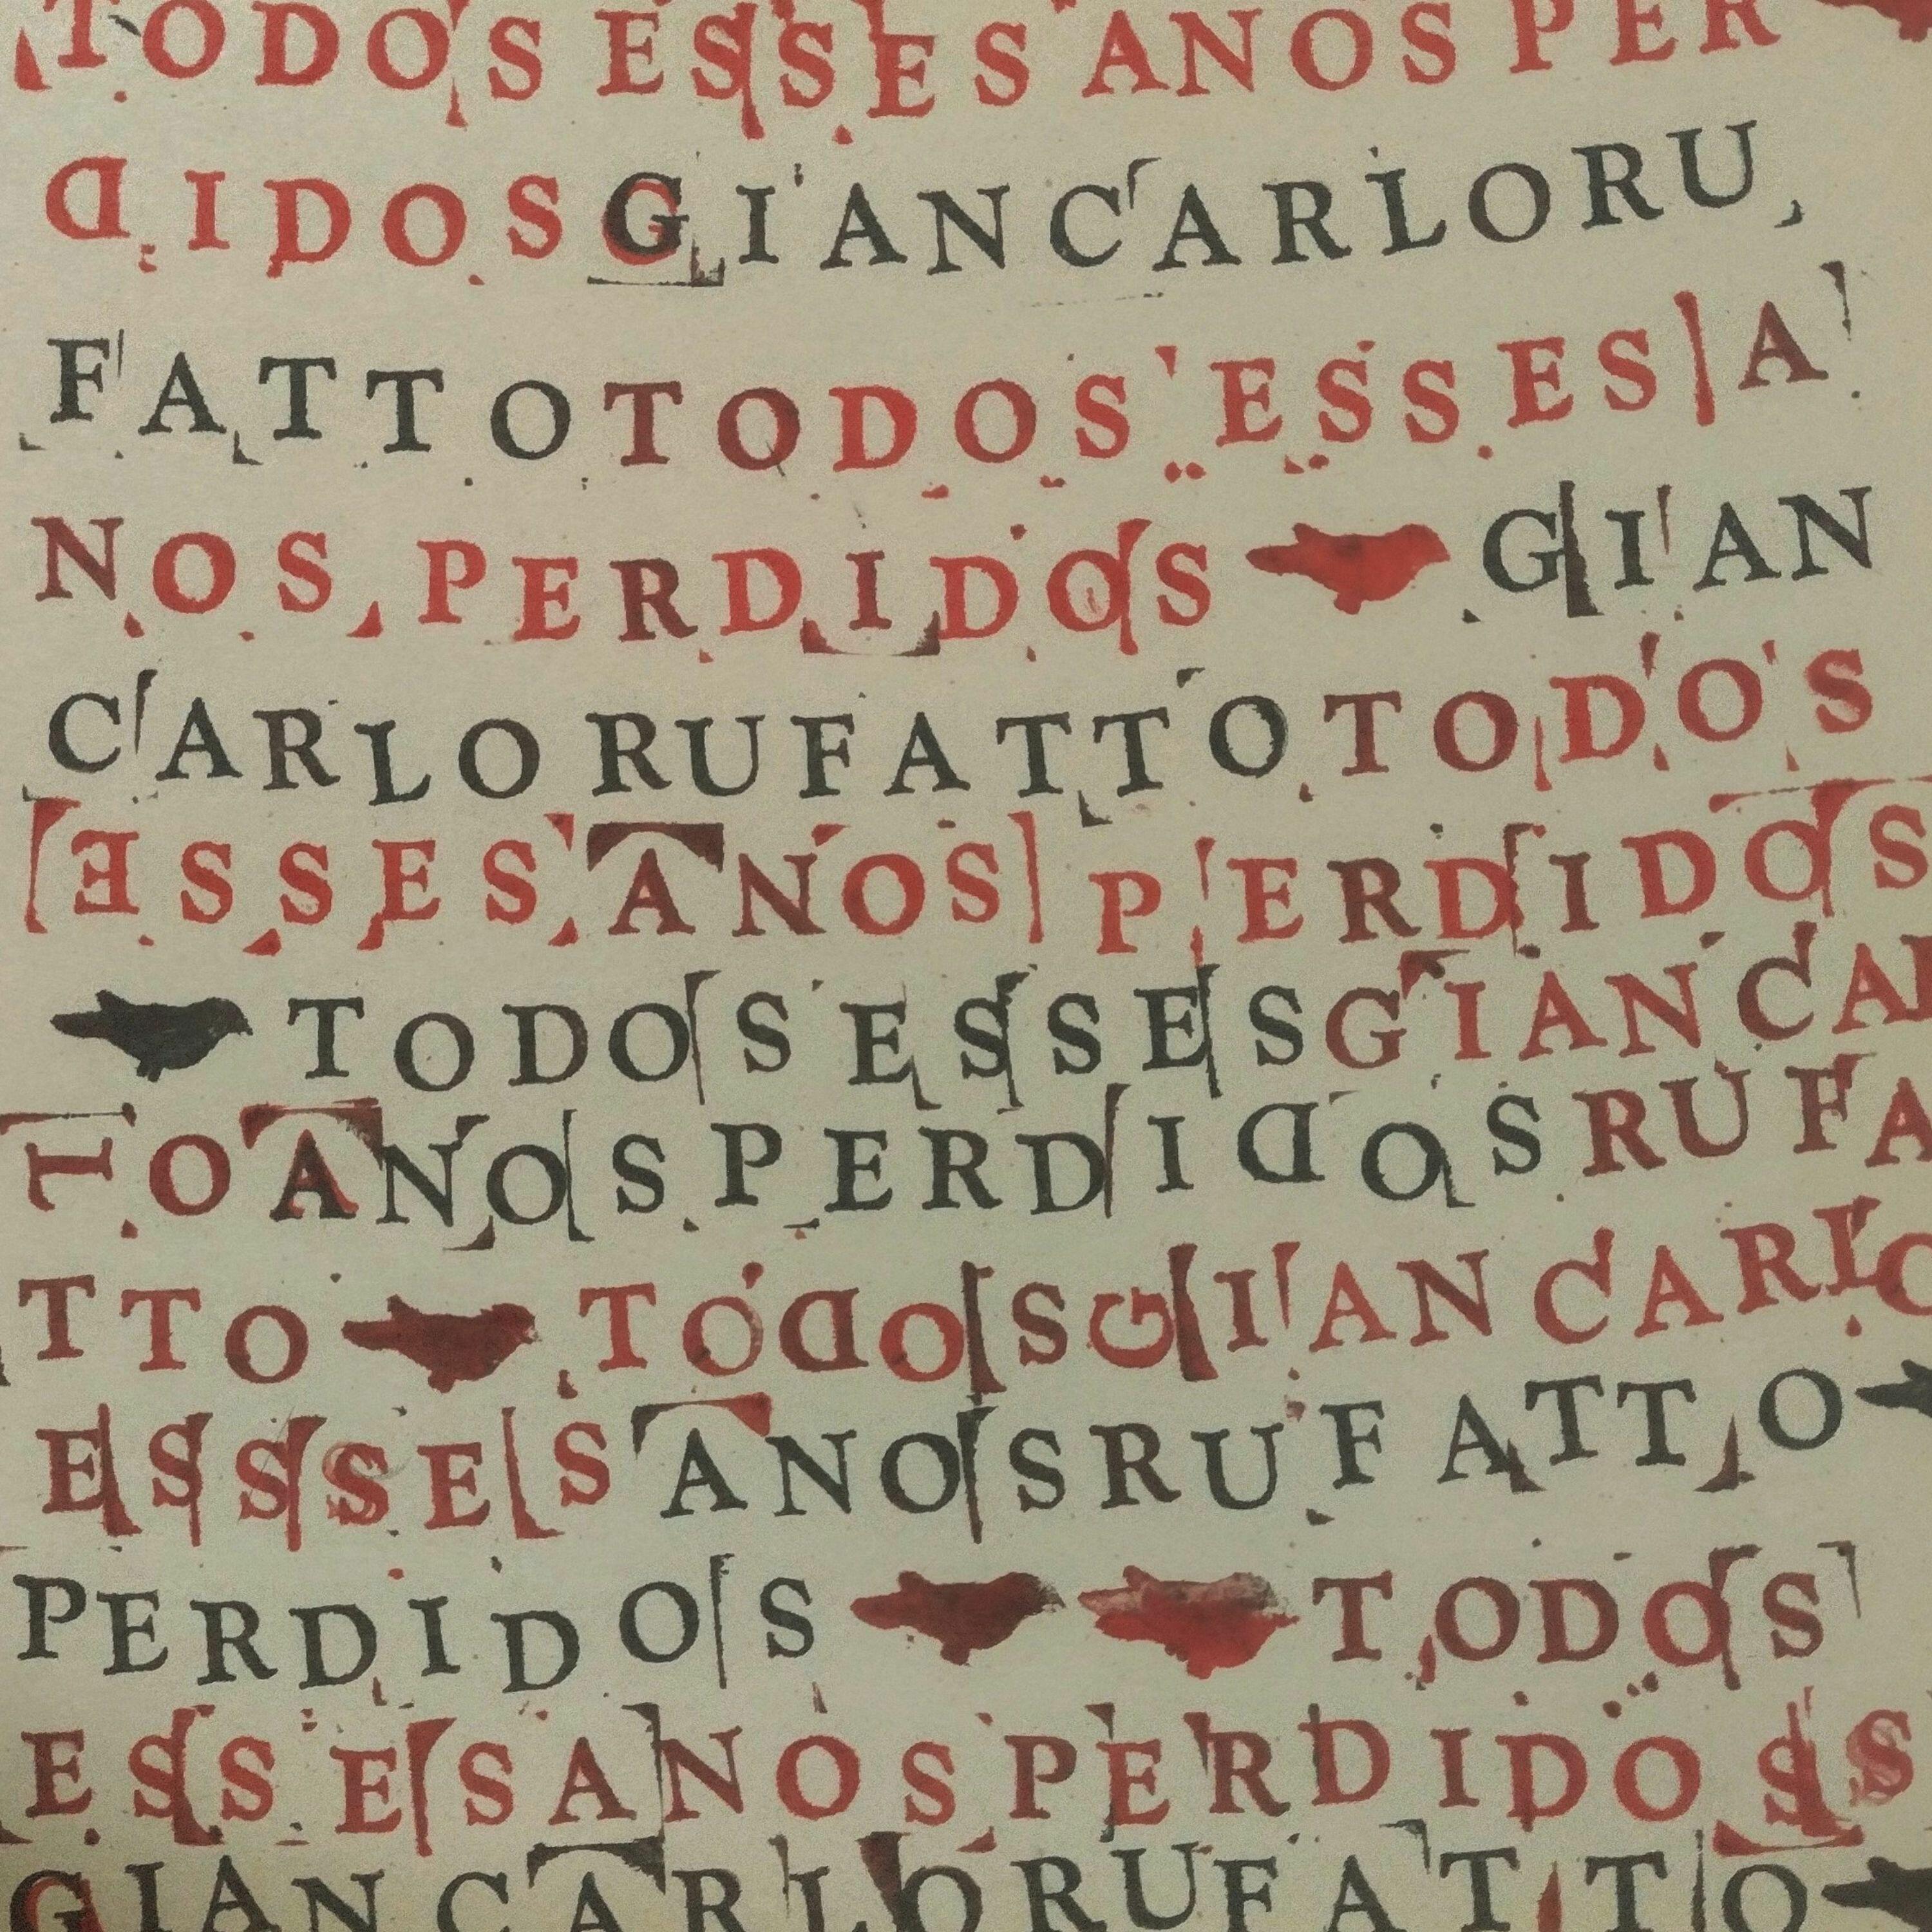 TODOS ESSES ANOS PER
DIDOSGIANCARLORU
FATTOTODOS ESSES A
NOS PERDIDOS GIAN
CARLO RUFATTO TODOS
ESSES ANOS PERDIDOS
TODOS ESSESGIANCAR
TOANOS PERDIDOSRUFA
TTO TODOSGIANCARLO
ESSSESANOSRUFATTO
PERDIDOS TODOS
ESSESANOSPERDIDOSS
GIANCARLORUFATTO